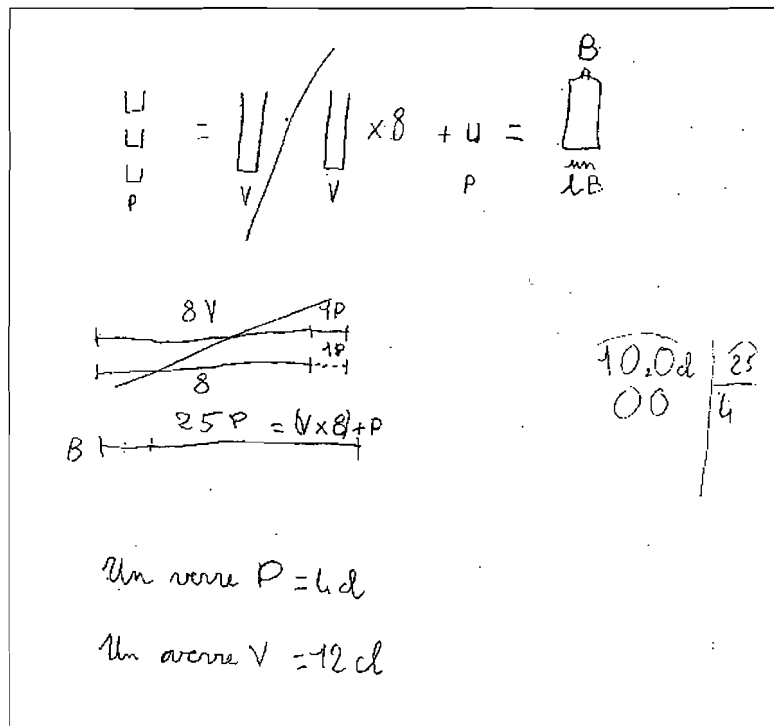 B
= × 8 + =
P V V P un
1B
8V 1P
8 1P
25P = (V×8)+P
B
10,0cl 25
00 4
Un verre P = 4cl
Un averre V = 12 cl